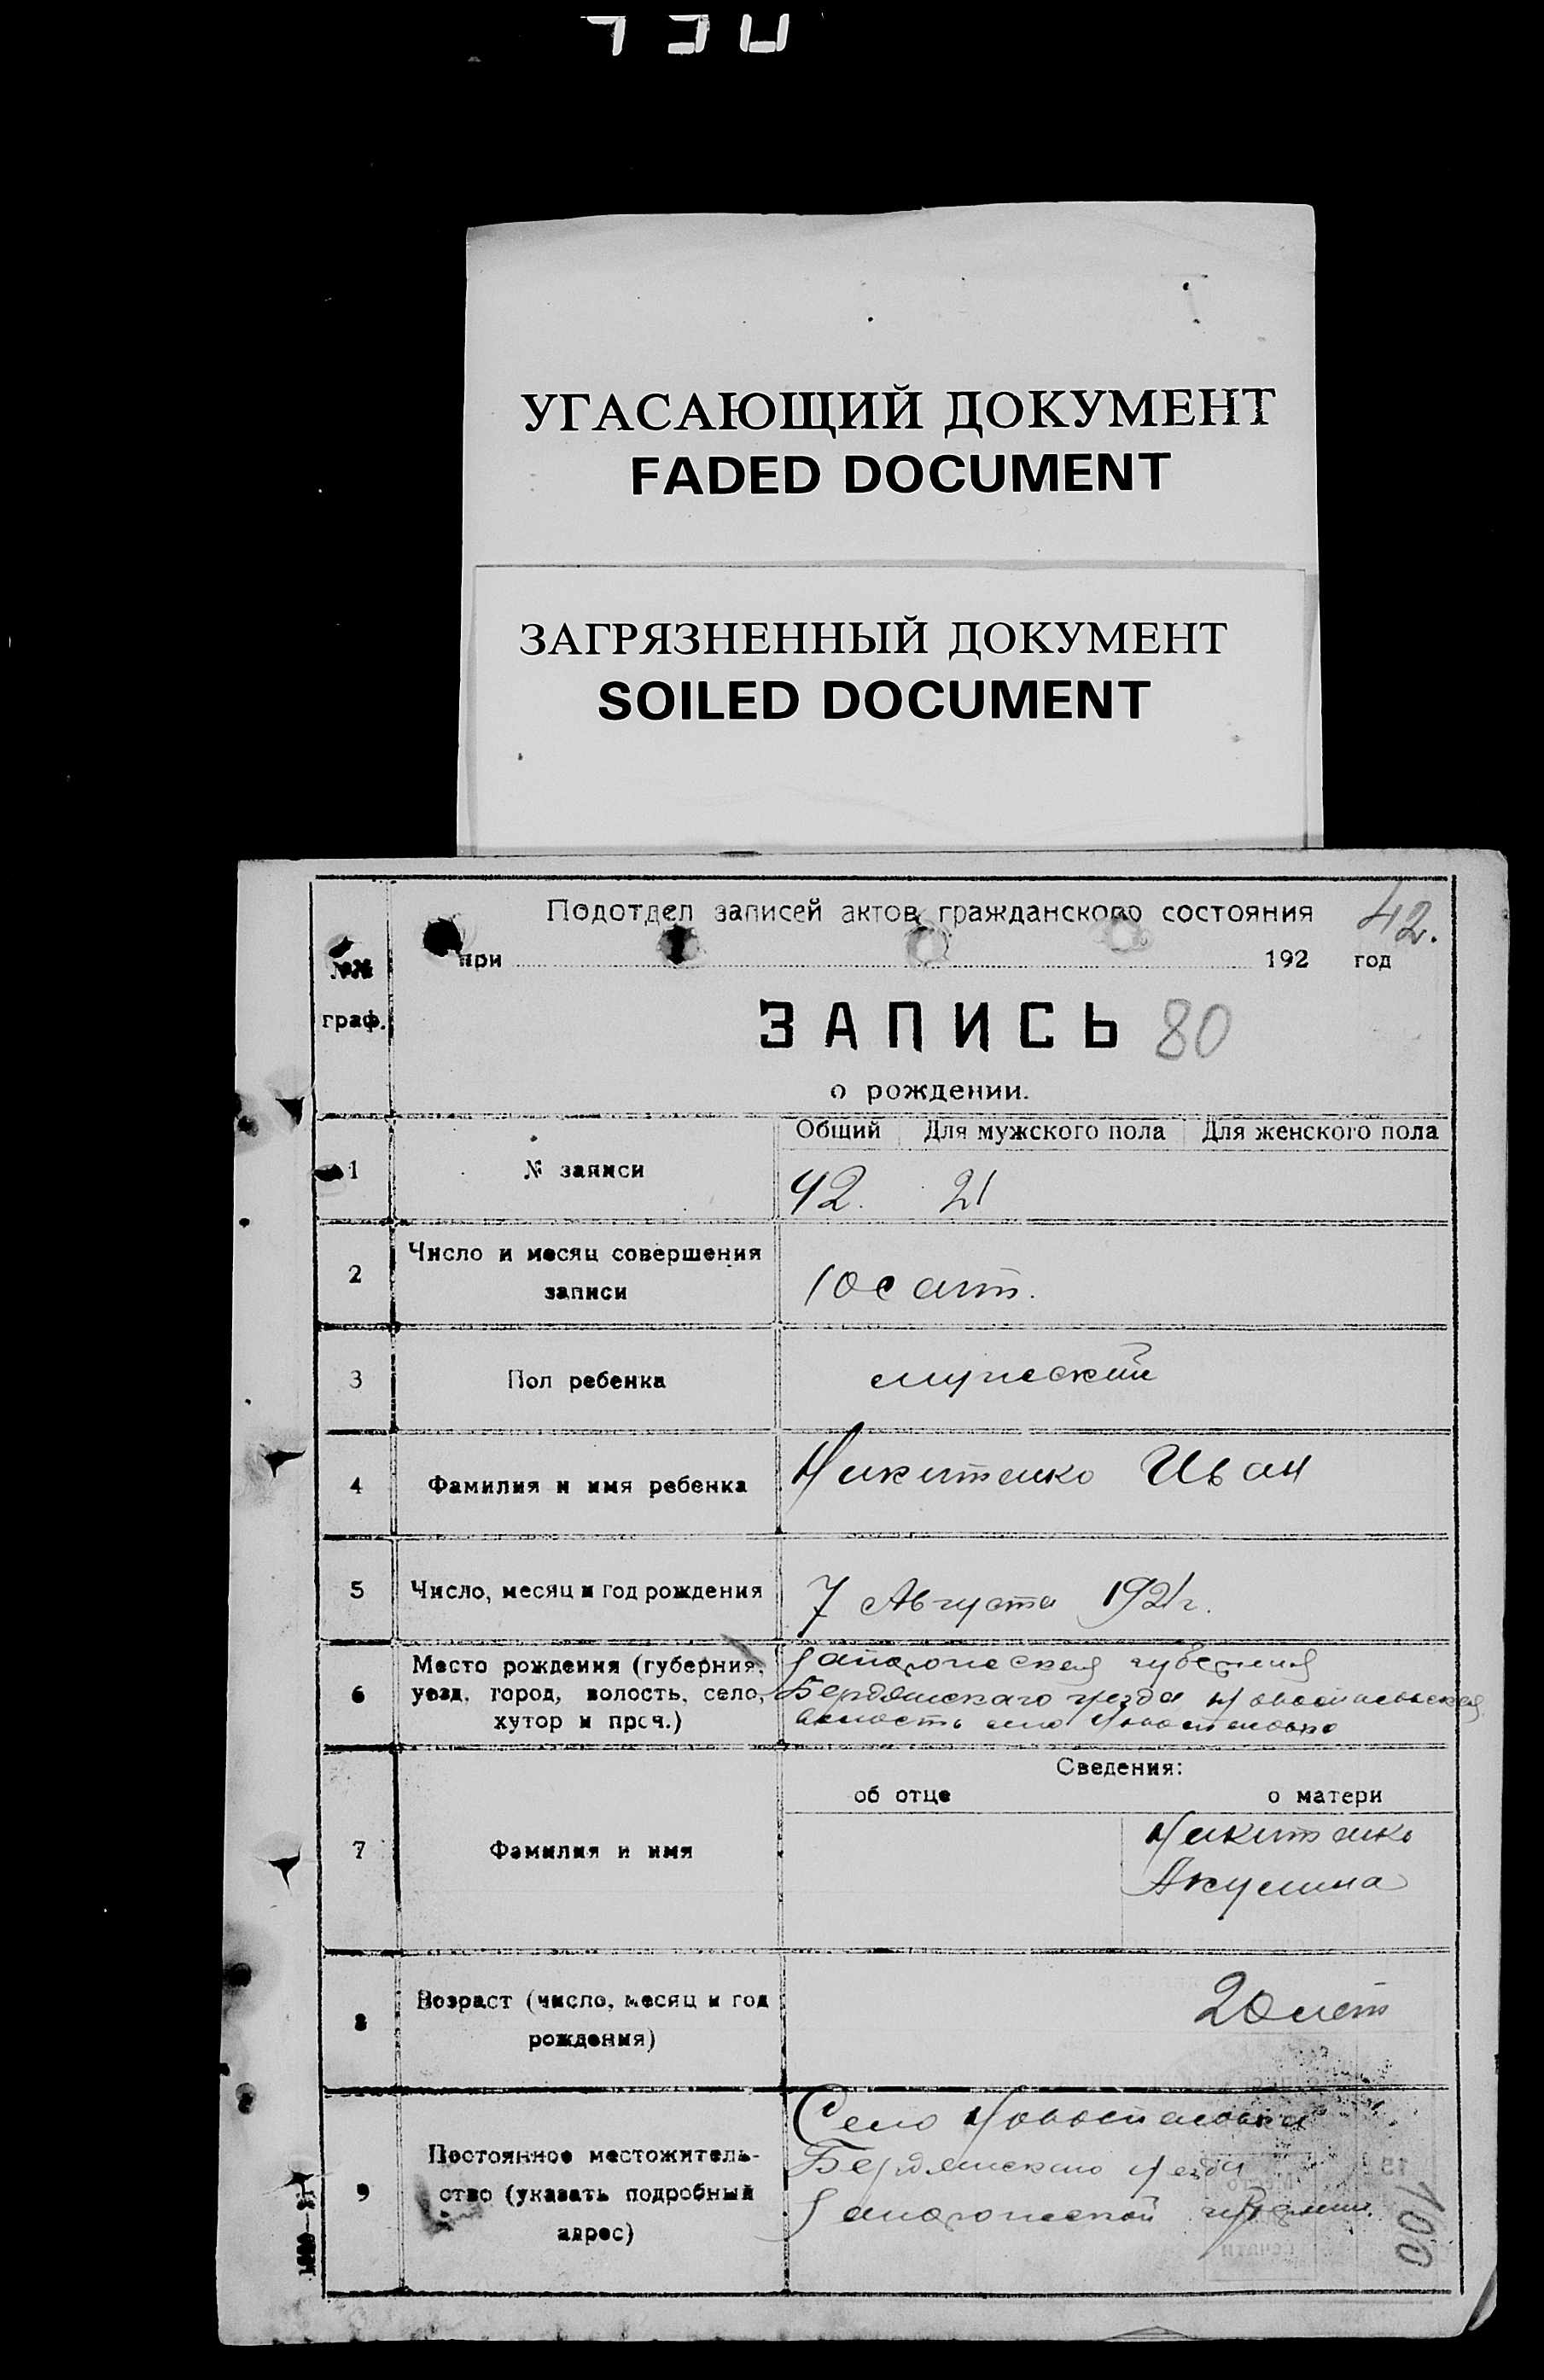 УГАСАЮЩИЙ ДОКУМЕНТ
FADED DOCUMENT
ЗАГРЯЗНЕННЫЙ ДОКУМЕНТ
SOILED DOCUMENT
Подотдел записей актов гражданского состояния 42.
при 192 год
№№ граф.
ЗАПИСЬ 80
о рождении.
Общий Для мужского пола Для женского пола
1 № записи 42. 21
2 Число и месяц совершения
записи 10 сент.
3 Пол ребенка мужеский
4 Фамилия и имя ребенка Никитенко Иван
5 Число, месяц и год рождения 7 Августа 1921 г.
Место рождения (губерния, Запорожская губерния
6 уезд, город, волость, село, Бердянскаго уезда Новоспасовская
хутор и проч.) волость село Новоспасовка
Сведения:
об отце о матери
7 Фамилия и имя Никитенко
Акулина
8 Возраст (число, месяц и год
рождения) 20 лет
Село Новоспасовка
9 Постоянное местожитель- Бердянскаго уезда
ство (указать подробный Запорожской губернии.
адрес)
100